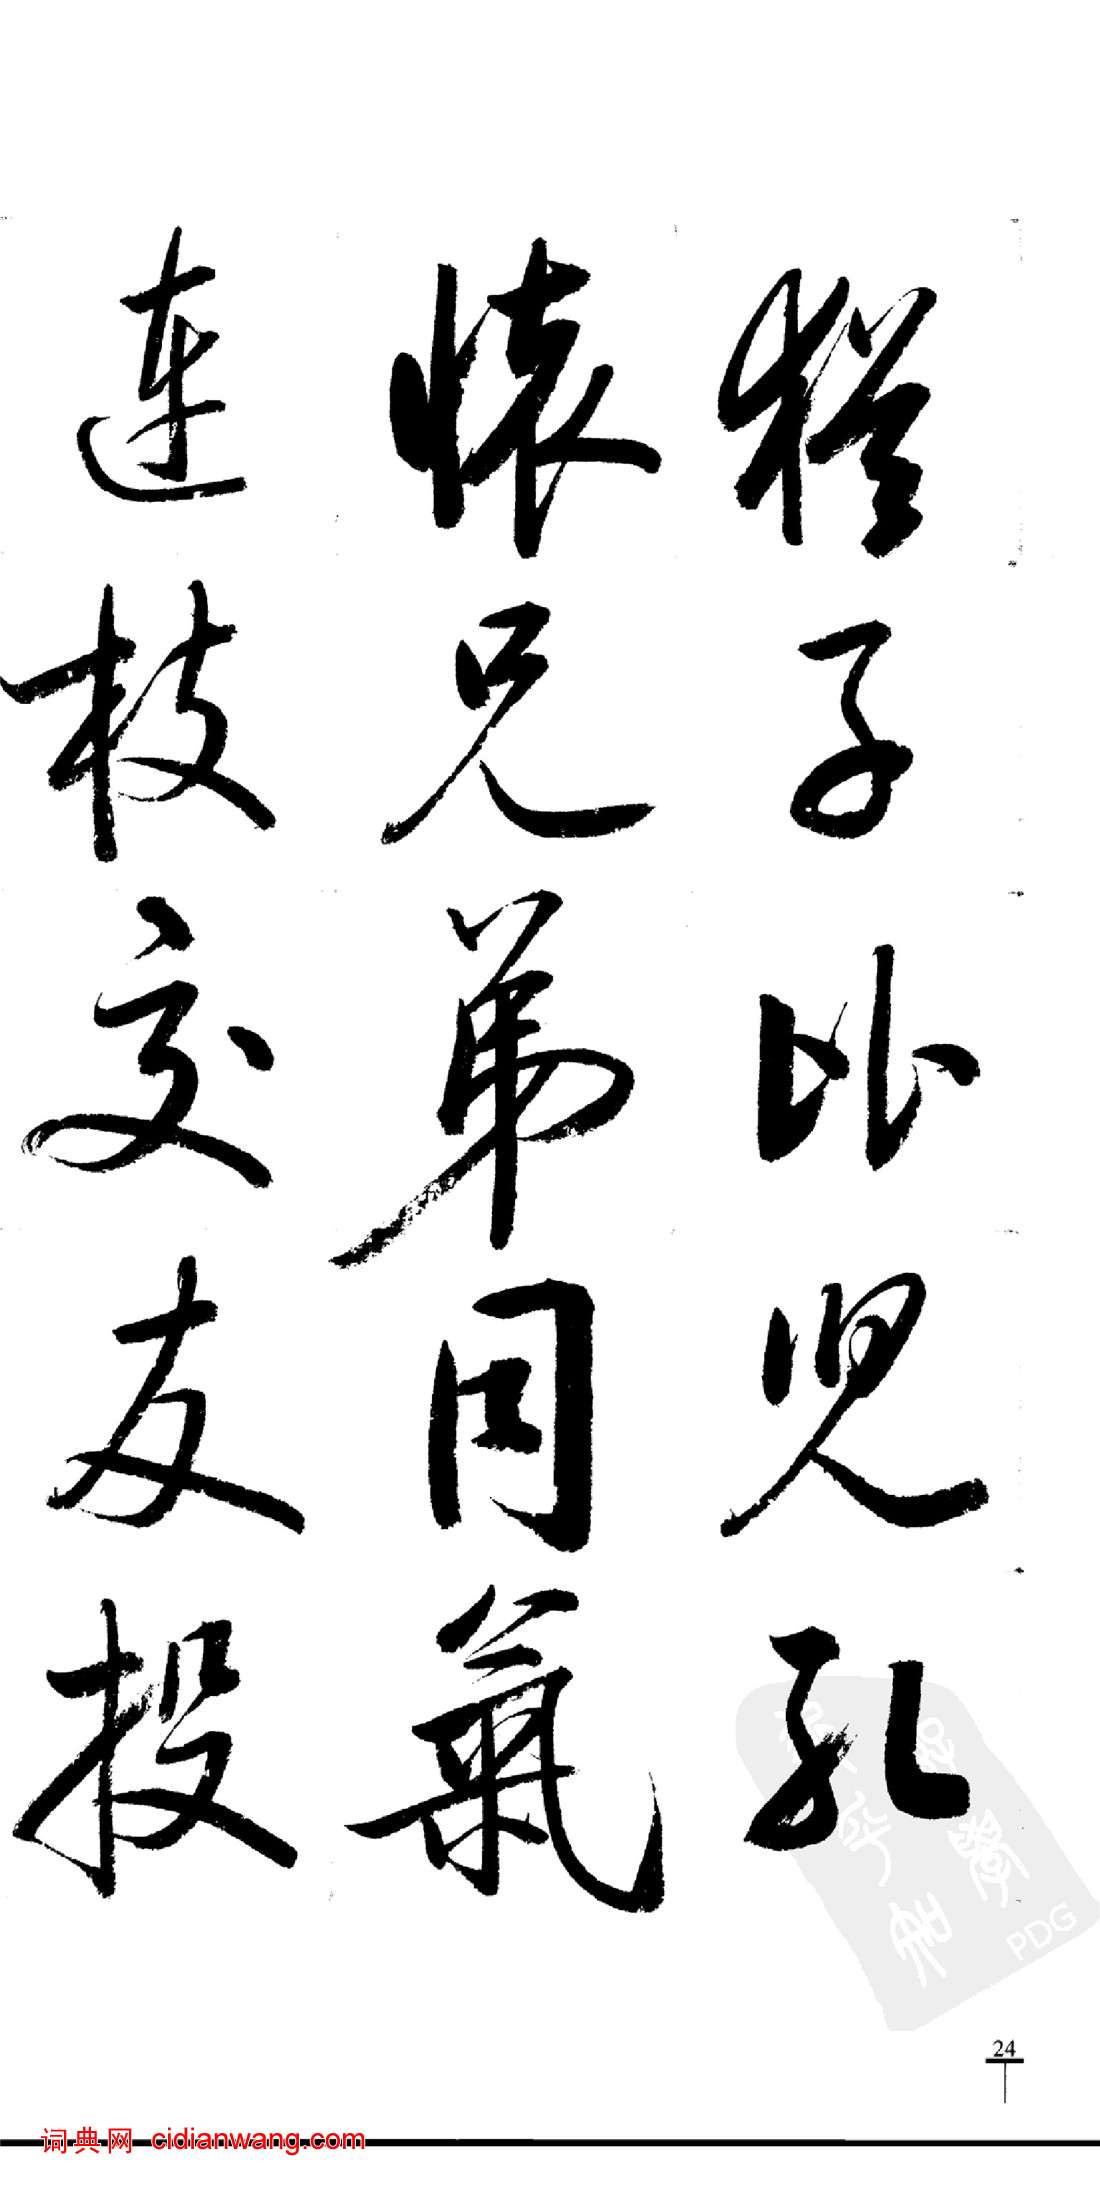 猶子比兒孔
懷兄弟同氣
連枝交友投
24
词典网 cidianwang.com
PDG